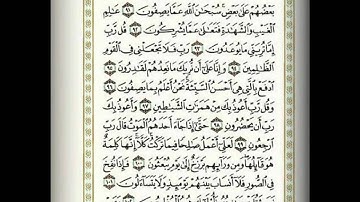 بَعْضُهُمْ عَلَىٰ بَعْضٍ سُبْحَٰنَ ٱللَّهِ عَمَّا يَصِفُونَ ٩١ عَٰلِمِ
ٱلْغَيْبِ وَٱلشَّهَٰدَةِ فَتَعَٰلَىٰ عَمَّا يُشْرِكُونَ ٩٢ قُل رَّبِّ
إِمَّا تُرِيَنِّي مَا يُوعَدُونَ ٩٣ رَبِّ فَلَا تَجْعَلْنِي فِي ٱلْقَوْمِ
ٱلظَّٰلِمِينَ ٩٤ وَإِنَّا عَلَىٰٓ أَن نُّرِيَكَ مَا نَعِدُهُمْ لَقَٰدِرُونَ ٩٥
ٱدْفَعْ بِٱلَّتِي هِيَ أَحْسَنُ ٱلسَّيِّئَةَ نَحْنُ أَعْلَمُ بِمَا يَصِفُونَ ٩٦
وَقُل رَّبِّ أَعُوذُ بِكَ مِنْ هَمَزَٰتِ ٱلشَّيَٰطِينِ ٩٧ وَأَعُوذُ بِكَ
رَبِّ أَن يَحْضُرُونِ ٩٨ حَتَّىٰٓ إِذَا جَآءَ أَحَدَهُمُ ٱلْمَوْتُ قَالَ رَبِّ
ٱرْجِعُونِ ٩٩ لَعَلِّيٓ أَعْمَلُ صَٰلِحًا فِيمَا تَرَكْتُ كَلَّآ إِنَّهَا كَلِمَةٌ
هُوَ قَآئِلُهَا وَمِن وَرَآئِهِم بَرْزَخٌ إِلَىٰ يَوْمِ يُبْعَثُونَ ١٠٠ فَإِذَا نُفِخَ
فِي ٱلصُّورِ فَلَآ أَنسَابَ بَيْنَهُمْ يَوْمَئِذٍ وَلَا يَتَسَآءَلُونَ ١٠١